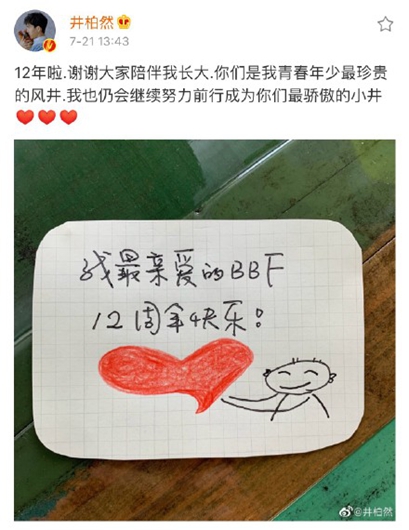 井柏然
7-21 13:43
12年啦.谢谢大家陪伴我长大.你们是我青春年少最珍贵
的风井.我也仍会继续努力前行成为你们最骄傲的小井
我最亲爱的BBF
12周年快乐!
@井柏然